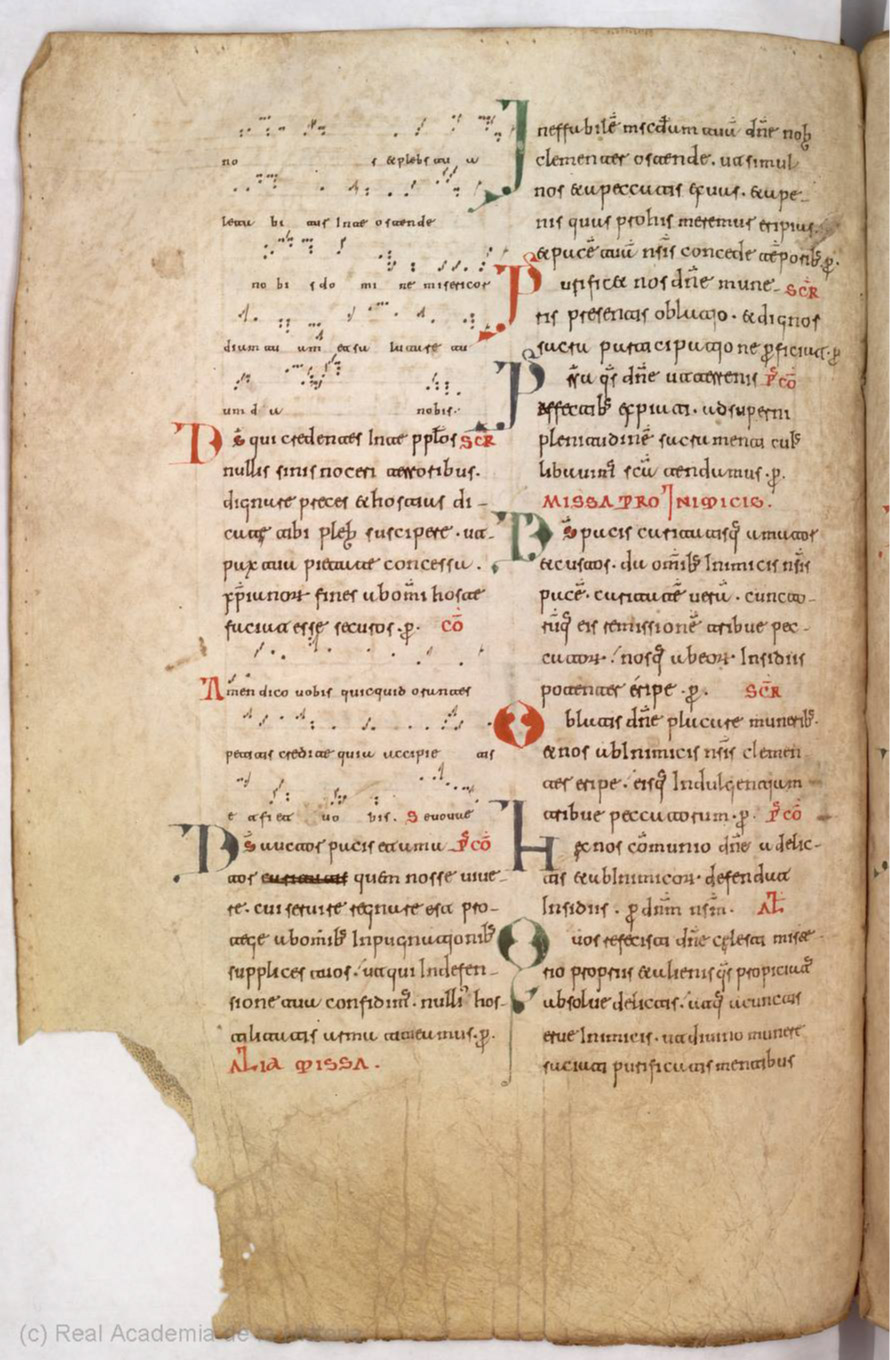 no s & plebs tu a
letabi tur Inte ostende
no bi s do mi ne misericor
diam tu am et salutare tu
um d a nobis.
Ds̄ qui credentes Inte pplōs SCR̄
nullis sinis noceri terroribus.
dignare preces & hostias di-
cate tibi pleb suscipere. ut
pax tua pietate concessa.
xp̄ianor fines ab om̄i hoste
faciat esse securos. p. CŌ
Amen dico uobis quicquid orantes
petitis credite quia accipie tis
e t fiet uo bis. Seuouae
Ds̄ auctor pacis et ama PCŌ
tor caritatis quem nosse uiue-
re. cui seruire regnare est pro-
tege ab omīb Inpugnationib
supplices tuos. ut qui Indefen-
sione tua confidim. nulli hos-
tilitatis arma timeamus. p.
ALIA MISSA.
Ineffabilē mscdīam tuā dn̄e nob
clementer ostende. ut simul
nos & apeccatis exuas. & ape-
nis quas prohis meremur eripias.
& pacē tuā nr̄is concede tēporib. p.
Purifica nos dn̄e mune- SCR̄
ris presentis oblatio. & dignos
sacra participatione perficiat. p
Pr̄sta qs̄ dn̄e ut aterrenis PCŌ
affectib expiati. adsuperni
plenitudinē sacramenti cuis
libauim̄ scā tendamus. p.
MISSA PRO INIMICIS.
Ds̄ pacis caritatisq amator
& custos. da omīb Inimicis nr̄is
pacē. caritatē ueră. cuncto-
rūq eis remissionē tribue pec-
cator. nosq abeor Insidiis
potenter eripe. p. SCR̄
Oblatis dn̄e placare munerib.
& nos abInimicis nr̄is clemen
ter eripe. eisq Indulgentiam
tribue peccatorum. p. PCŌ
Hec nos cōmunio dn̄e a delic-
tis & abInimicor defendat
Insidiis. p dn̄m nr̄m. AL
Quos refecisti dn̄e celesti miste
rio propriis & alienis qs̄ propiciat
absolue delictis. utq auctas
erue Inimicis. ut diuino munere
saciati purificatis mentibus